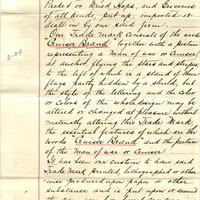 Pressed or Dried Hops, and Groceries
of all kinds, put up, imported or
dealt in by our said firm.
Our Trade Mark consists of the words
Cruiser Brand together with a picture
representing a man of war or Cruiser
at anchor flying the stars and stripes
to the left of which is a stand of
flags partly hidden by a shield, but
the style of the lettering and the color
or colors of the whole design may be
altered or changed at pleasure without
materially altering this Trade Mark
the essential features of which are the
words Cruiser Brand and the picture
of the man of war or Cruiser
It has been our custom to have said
Trade Mark printed, lithographed or other-
wise produced upon paper or other
substance and is put upon or around